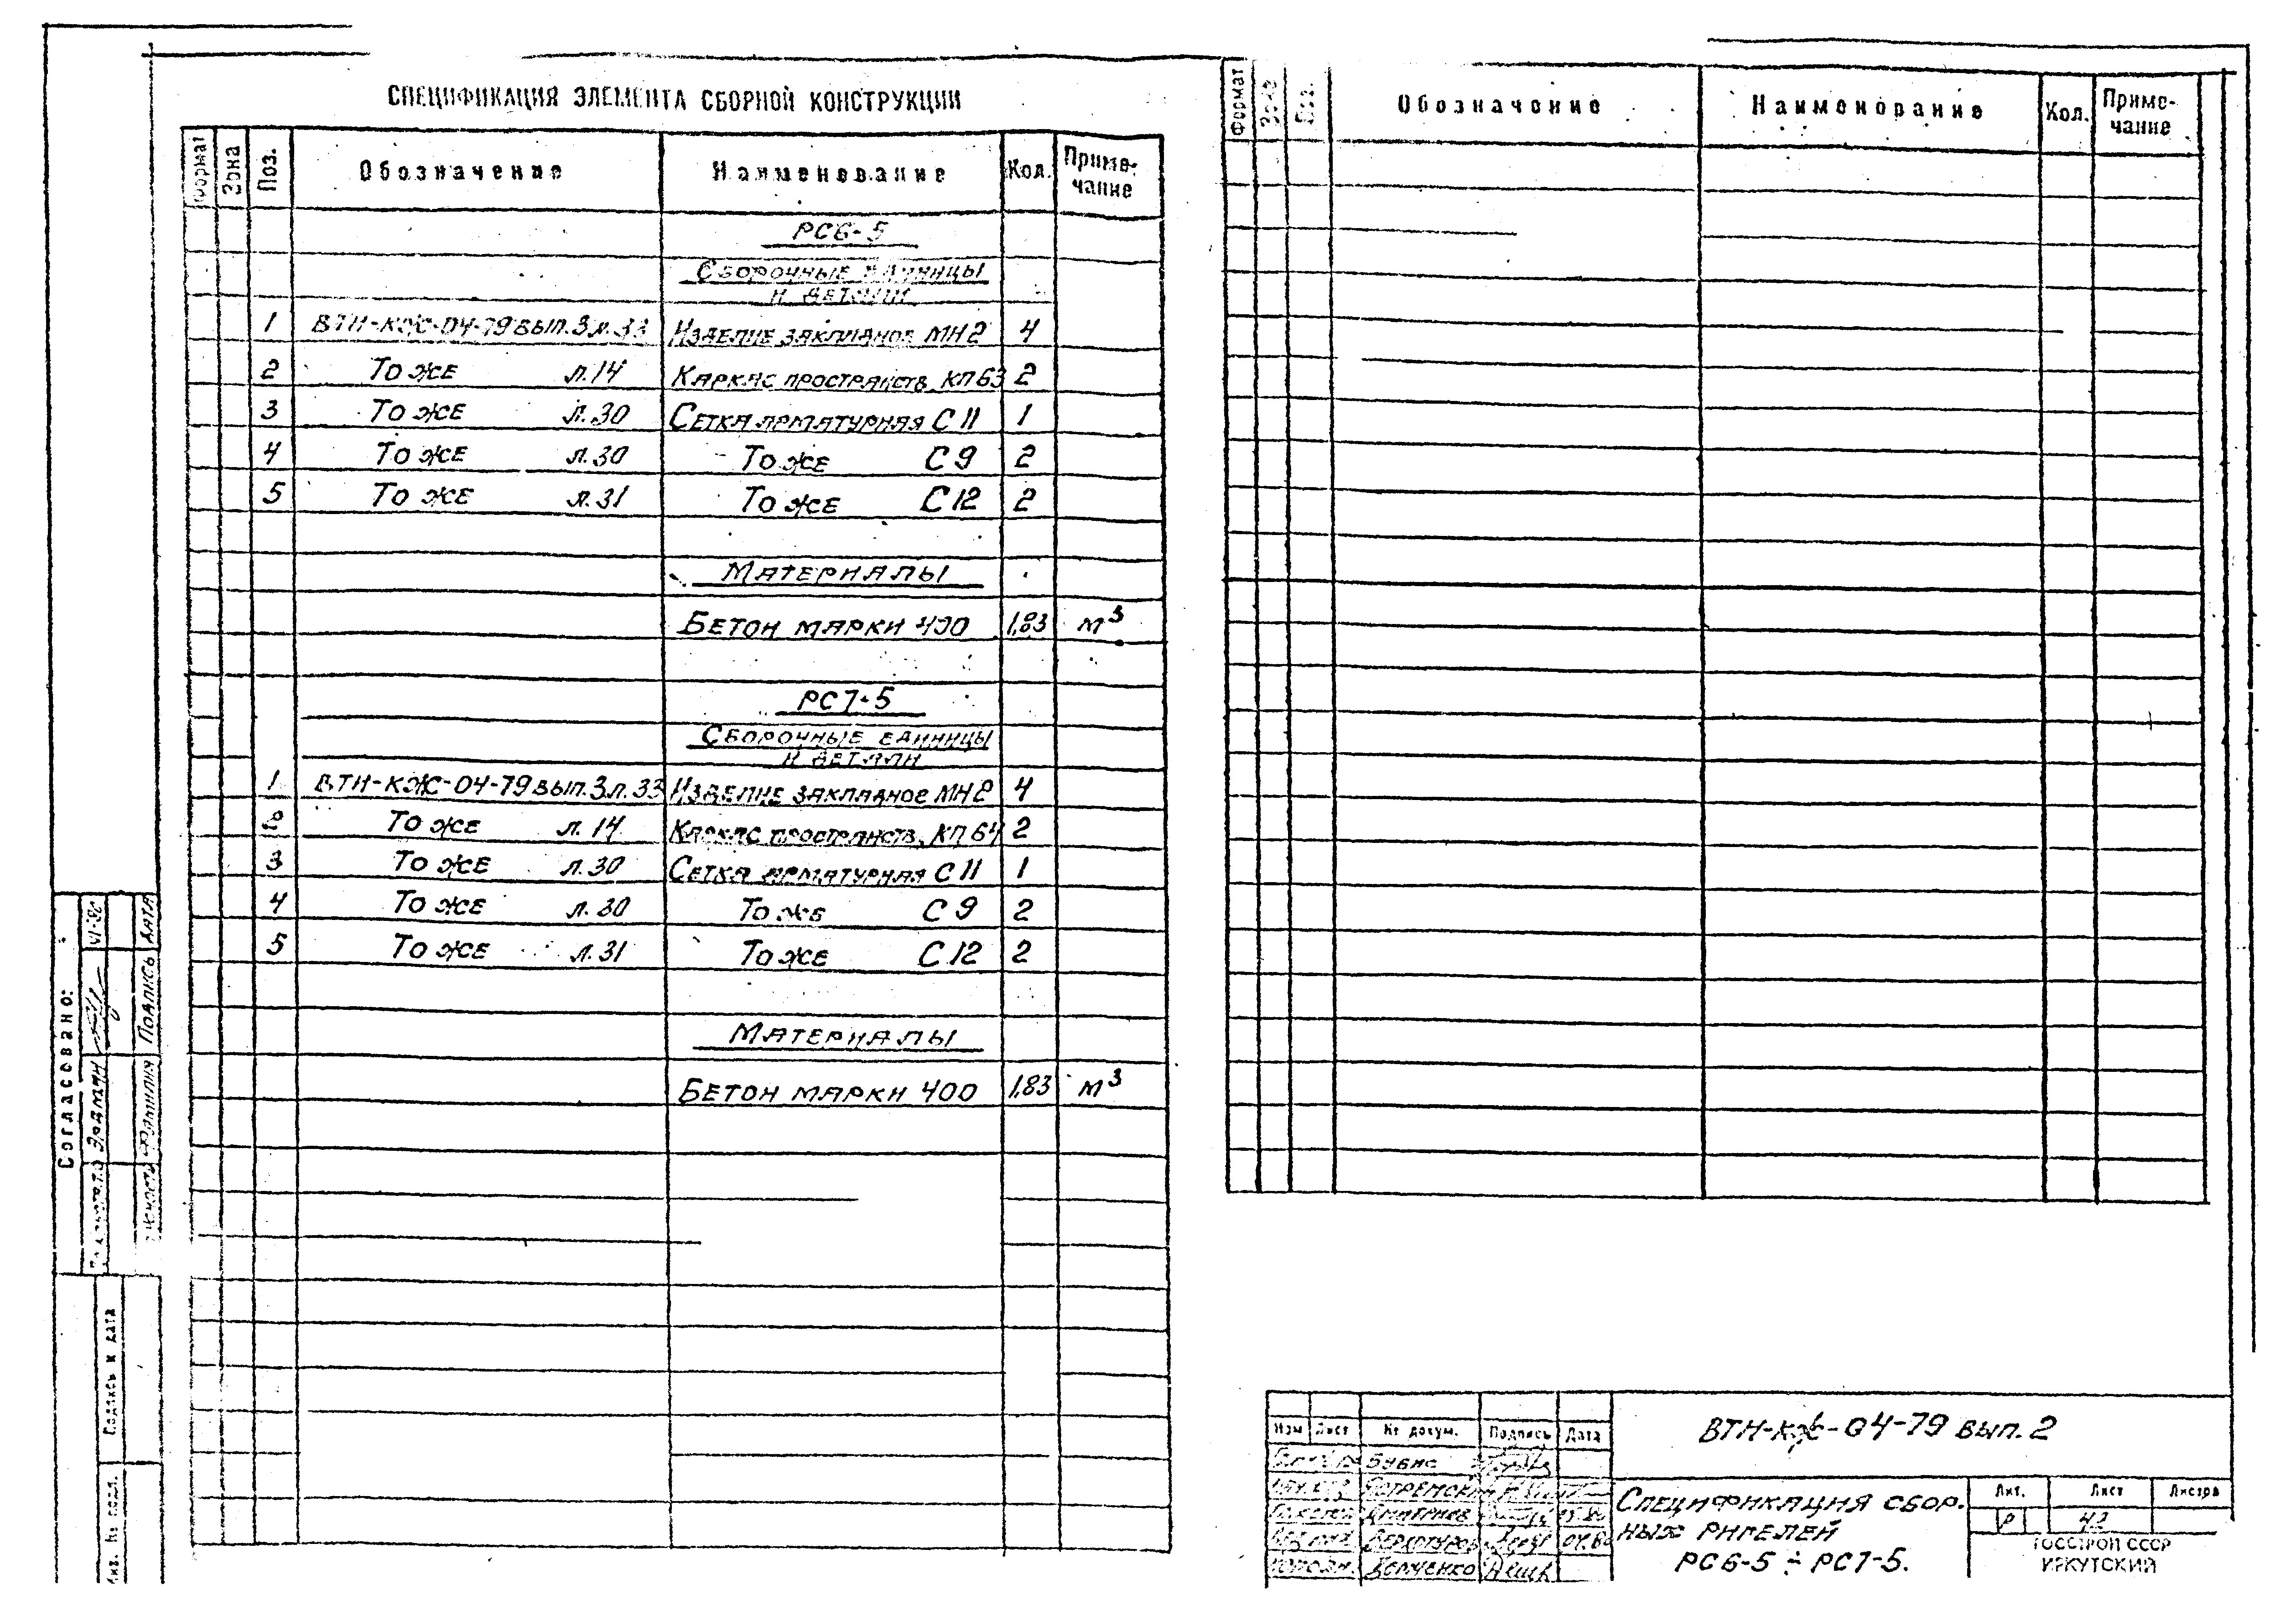 СПЕЦИФИКАЦИЯ ЭЛЕМЕНТА СБОРНОЙ КОНСТРУКЦИИ
Формат Зона Поз. Обозначение Наименование Кол. Приме-
чание
РС6-5
Сборочные единицы
и детали
1 ВТН-КЖ-04-79 вып.3 л.33 Изделие закладное МН2 4
2 То же л.14 Каркас пространств. КП63 2
3 То же л.30 Сетка арматурная С11 1
4 То же л.30 То же С9 2
5 То же л.31 То же С12 2
Материалы
Бетон марки 400 1,83 м³
РС7-5
Сборочные единицы
и детали
1 ВТН-КЖ-04-79 вып.3 л.33 Изделие закладное МН2 4
2 То же л.14 Каркас пространств. КП64 2
3 То же л.30 Сетка арматурная С11 1
4 То же л.30 То же С9 2
5 То же л.31 То же С12 2
Материалы
Бетон марки 400 1,83 м³
Формат Зона Поз. Обозначение Наименование Кол. Приме-
чание
Согласовано:
Эрдман VI-80
Фамилия Подпись Дата
Подпись и дата
Инв. № подл.
Изм Лист № докум. Подпись Дата
Бубис
Дмитриев
ВТН-КЖ-04-79 вып. 2
Спецификация сбор.
ных ригелей
РС6-5 ÷ РС7-5.
Лит. Лист Листов
Р 42
ГОССТРОЙ СССР
ИРКУТСКИЙ